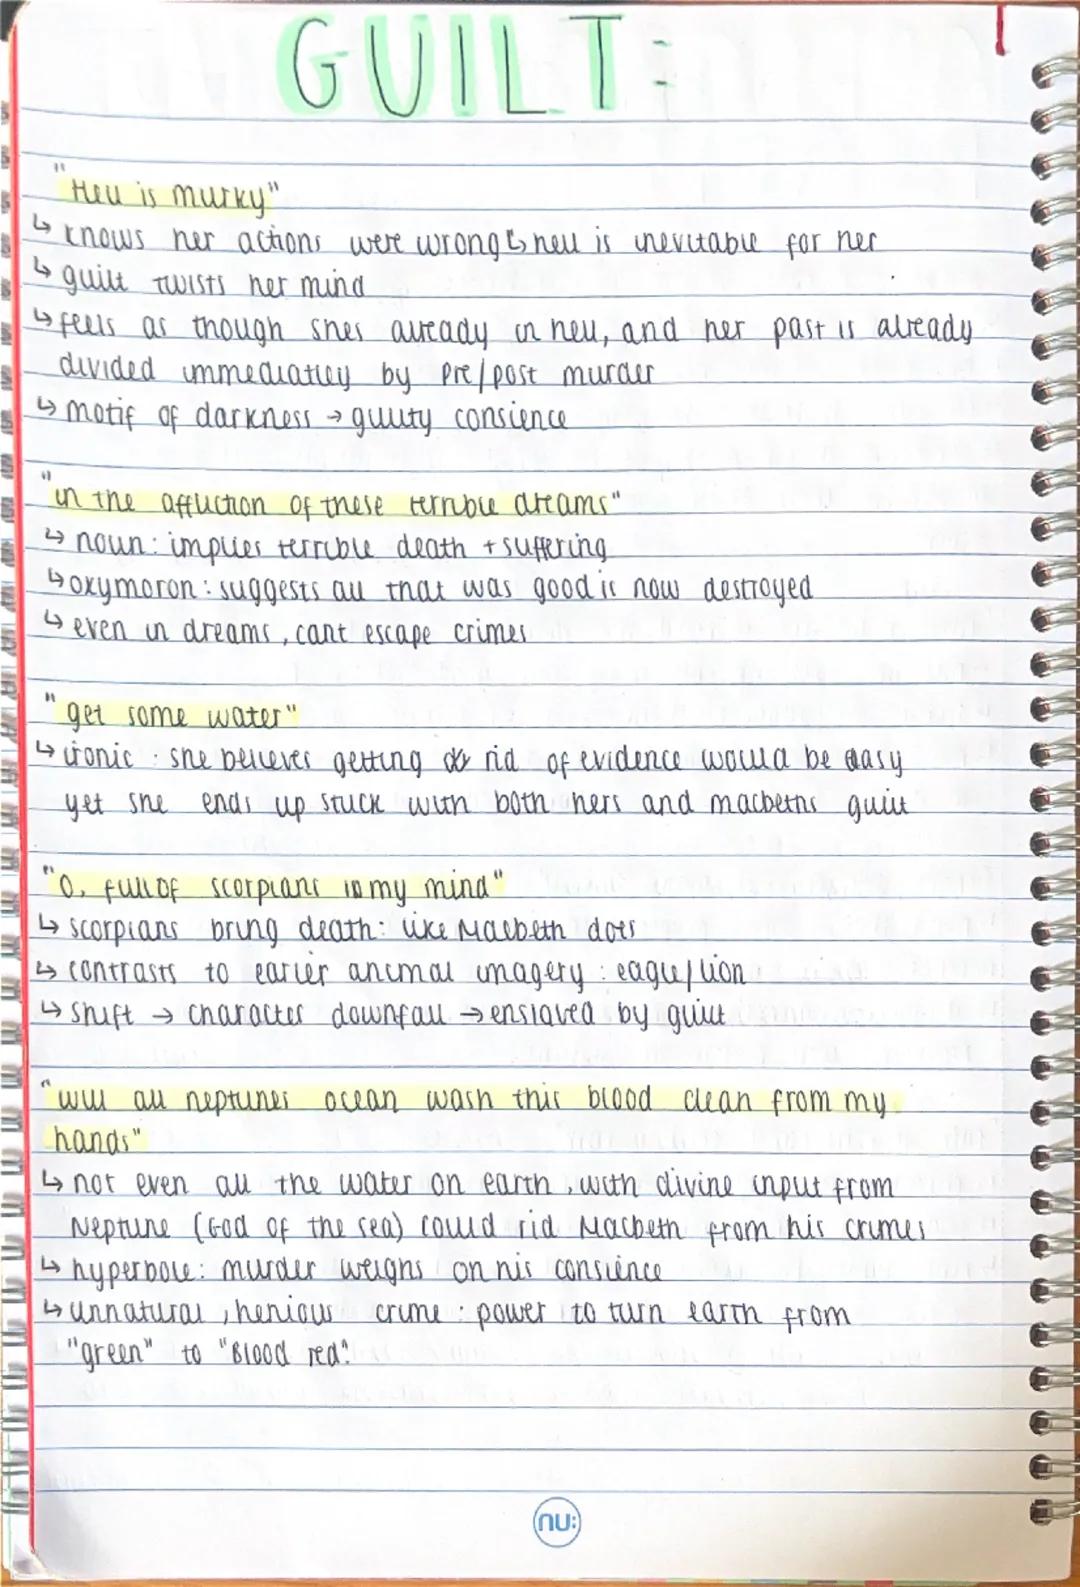 GUILT:
"Hell is murky"
↳ knows her actions were wrong ↳ hell is inevitable for her
↳ guilt twists her mind
↳ feels as though shes already in hell, and her past is already
divided immediatley by pre/post murder
↳ motif of darkness → guilty consience
"in the affliction of these terrible dreams"
↳ noun: implies terrible death + suffering
↳ oxymoron: suggests all that was good is now destroyed
↳ even in dreams, cant escape crimes
"get some water"
↳ ironic: she believes getting rid of evidence would be easy
yet she ends up stuck with both hers and macbeths guilt
"O, full of scorpians in my mind"
↳ scorpians bring death: like Macbeth does
↳ contrasts to earlier animal imagery: eagle/lion
↳ shift → character downfall → enslaved by guilt
"will all neptunes ocean wash this blood clean from my
hands"
↳ not even all the water on earth, with divine input from
Neptune (God of the sea) could rid Macbeth from his crimes
↳ hyperbole: murder weighs on his consience
↳ unnatural, henious crime: power to turn earth from
"green" to "Blood red".
nu: